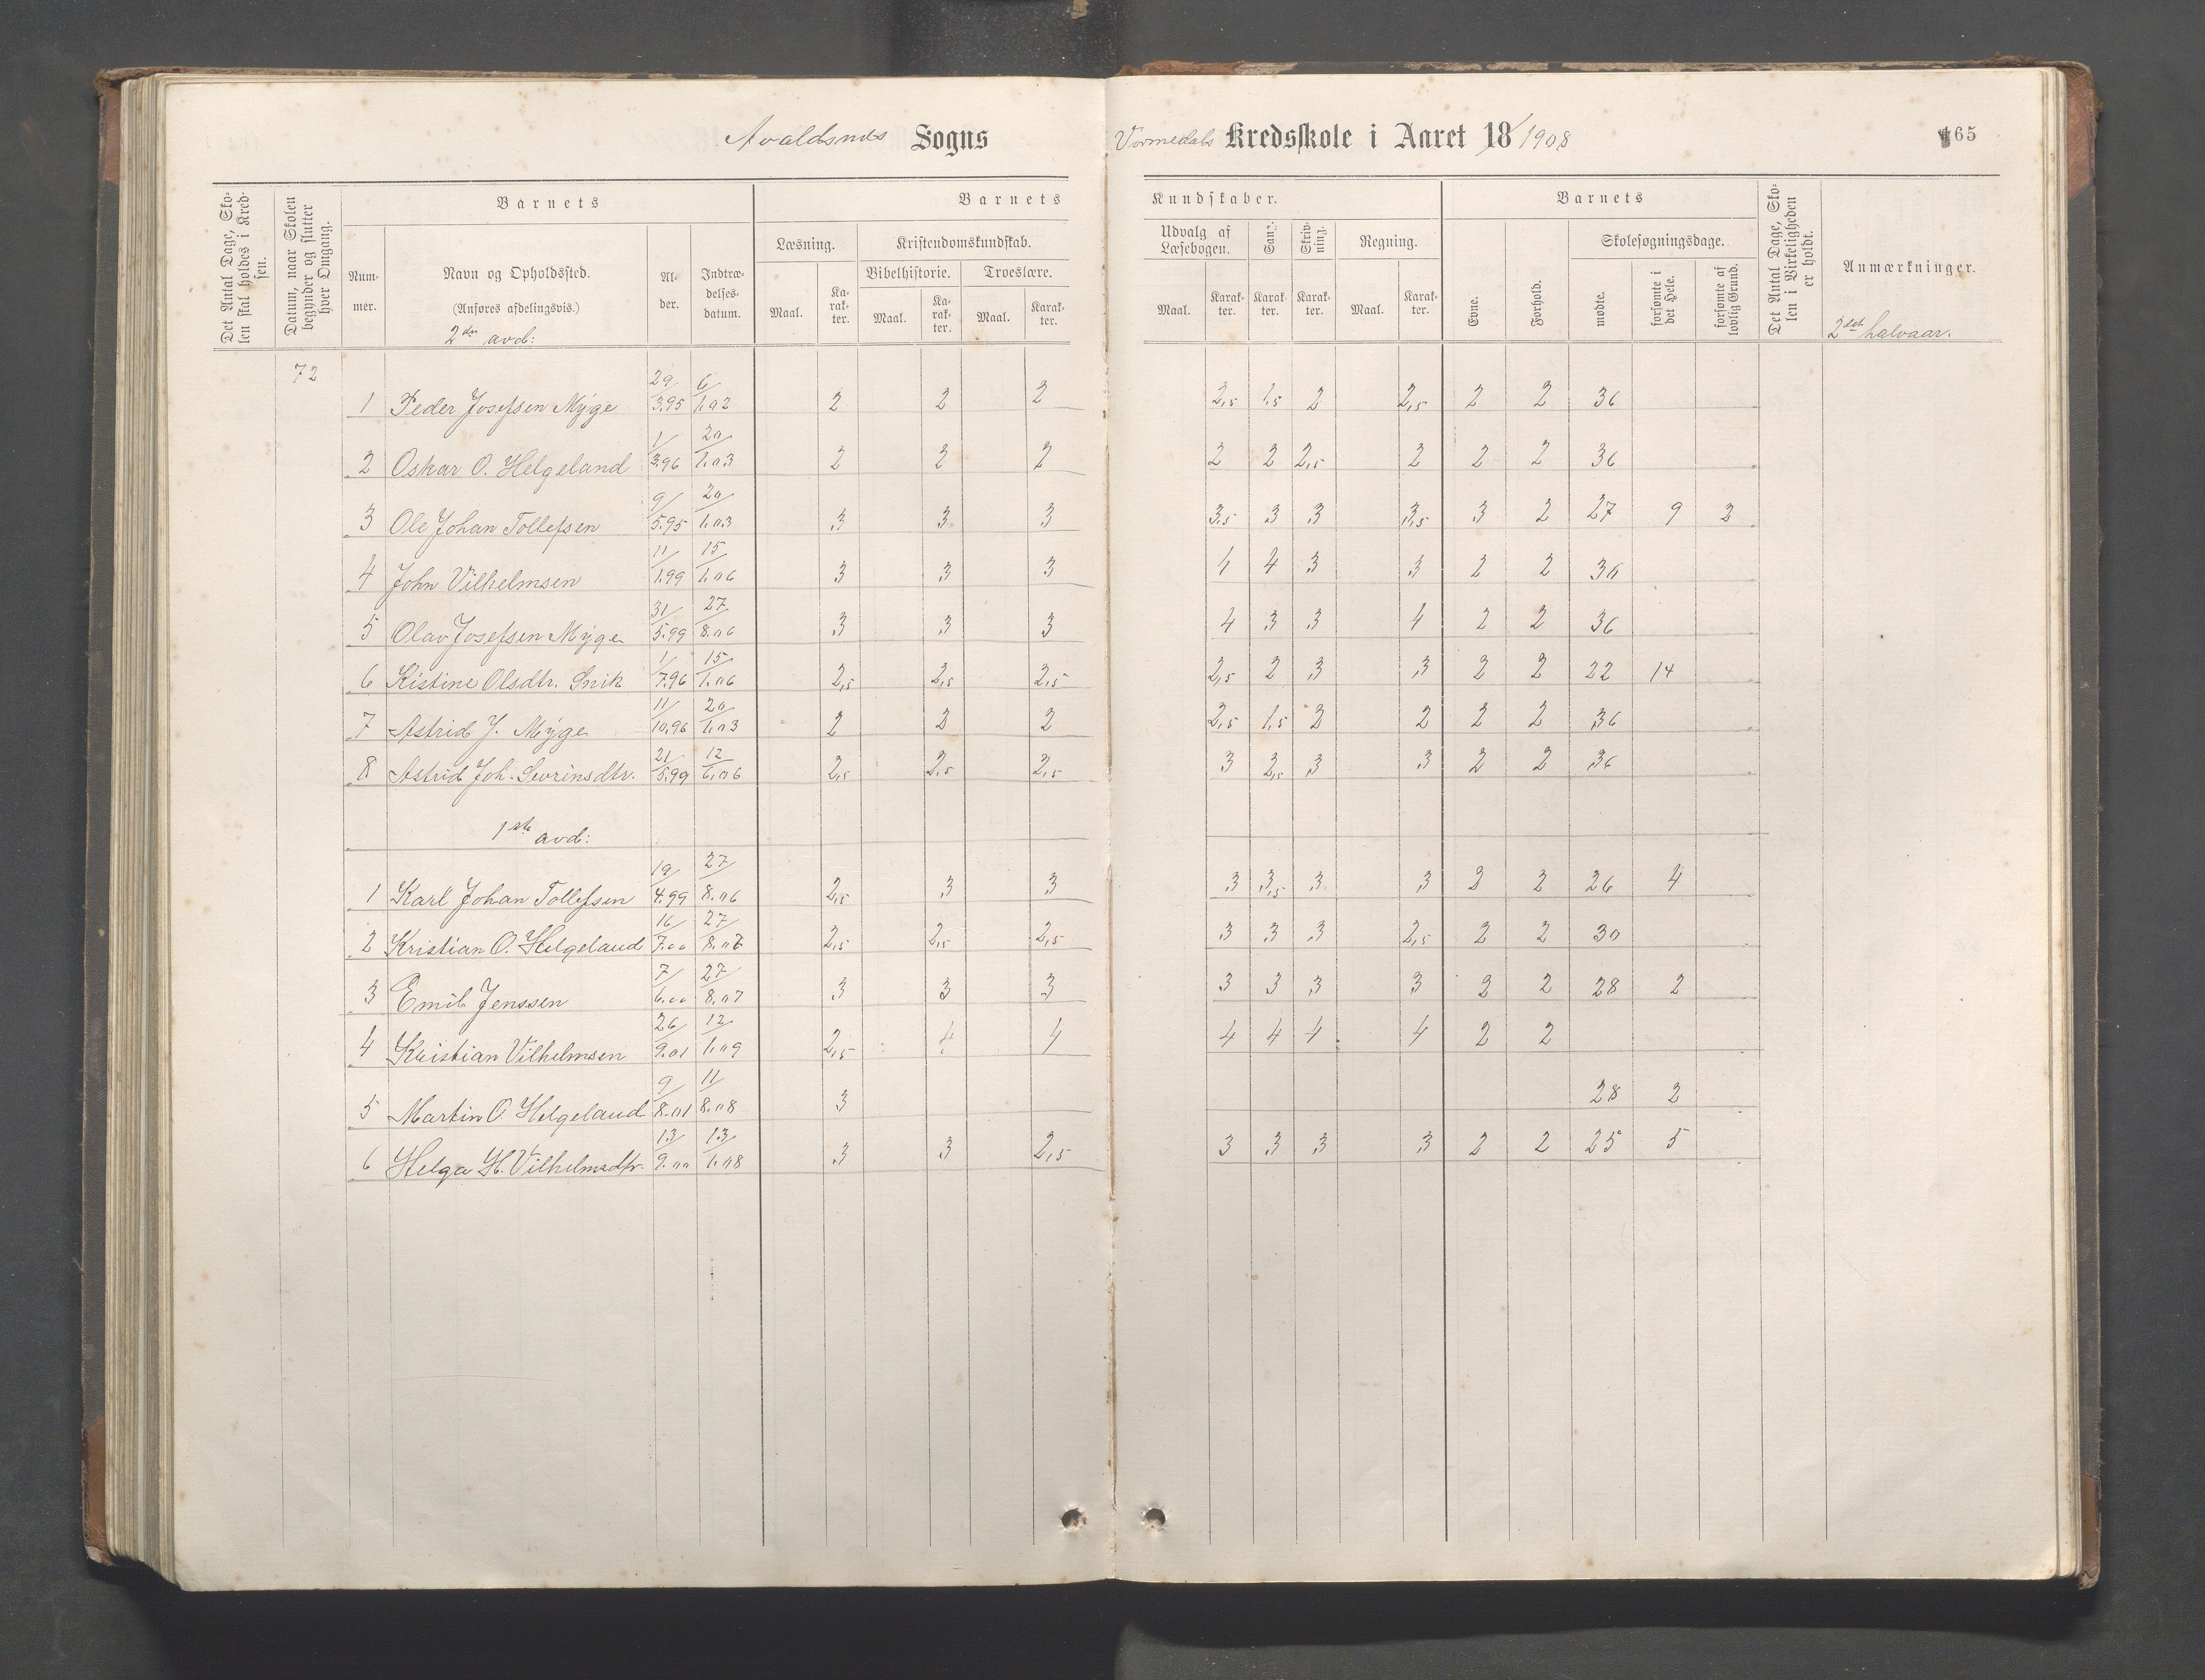 Avaldsnes Sogns
Vormedals Kredsskole i Aaret 18/1908
165
Det Antal Dage, Skolen skal holdes i Kredsen.
Datum, naar Skolen begynder og slutter hver Omgang.
Barnets
Nummer.
Navn og Opholdssted.
(Anføres afdelingsvis.)
2den avd:
Alder.
Indtrædelsesdatum.
Barnets
Læsning.
Kristendomskundskab.
Bibelhistorie.
Troeslære.
Maal.
Karakter.
Maal.
Karakter.
Maal.
Karakter.
Kundskaber.
Udvalg af Læsebogen.
Sang.
Skrivning.
Regning.
Maal.
Karakter.
Karakter.
Karakter.
Maal.
Karakter.
Barnets
Evne.
Forhold.
Skolesøgningsdage.
mødte.
forsømte i det Hele.
forsømte af lovlig Grund.
Det Antal Dage, Skolen i Virkeligheden er holdt.
Anmærkninger.
2det halvaar.
72
1 Peder Josefsen Myge 29/3.95 6/1.02 2 2 2 2,5 1,5 2 2,5 2 2 36
2 Oskar O. Helgeland 1/3.96 20/1.03 2 2 2 2 2 2,5 2 2 2 36
3 Ole Johan Tollefsen 9/5.95 20/1.03 3 3 3 3,5 3 3 3,5 3 2 27 9 2
4 John Vilhelmsen 11/1.99 15/1.06 3 3 3 4 4 3 3 2 2 36
5 Olav Josefsen Myge 31/5.99 27/8.06 3 3 3 4 3 3 4 2 2 36
6 Kistine Olsdtr. Snik 1/7.96 15/1.06 2,5 2,5 2,5 2,5 2 3 3 2 2 22 14
7 Astrid J. Myge 11/10.96 20/1.03 2 2 2 2,5 1,5 2 2 2 2 36
8 Astrid Joh. Sevrinsdtr. 21/5.99 12/6.06 2,5 2,5 2,5 3 2,5 3 3 2 2 36
1ste avd:
1 Karl Johan Tollefsen 19/4.99 27/8.06 2,5 3 3 3 3,5 3 3 2 2 26 4
2 Kristian O. Helgeland 16/7.00 27/8.07 2,5 2,5 2,5 3 3 3 2,5 2 2 30
3 Emil Jenssen 7/6.00 27/8.07 3 3 3 3 3 3 3 2 2 28 2
4 Kristian Vilhelmsen 26/9.01 12/1.09 2,5 4 4 4 4 4 4 2 2
5 Martin O. Helgeland 9/8.01 11/8.08 3 28 2
6 Helga H. Vilhelmsdtr. 13/9.00 13/1.08 3 3 2,5 3 3 3 3 2 2 25 5